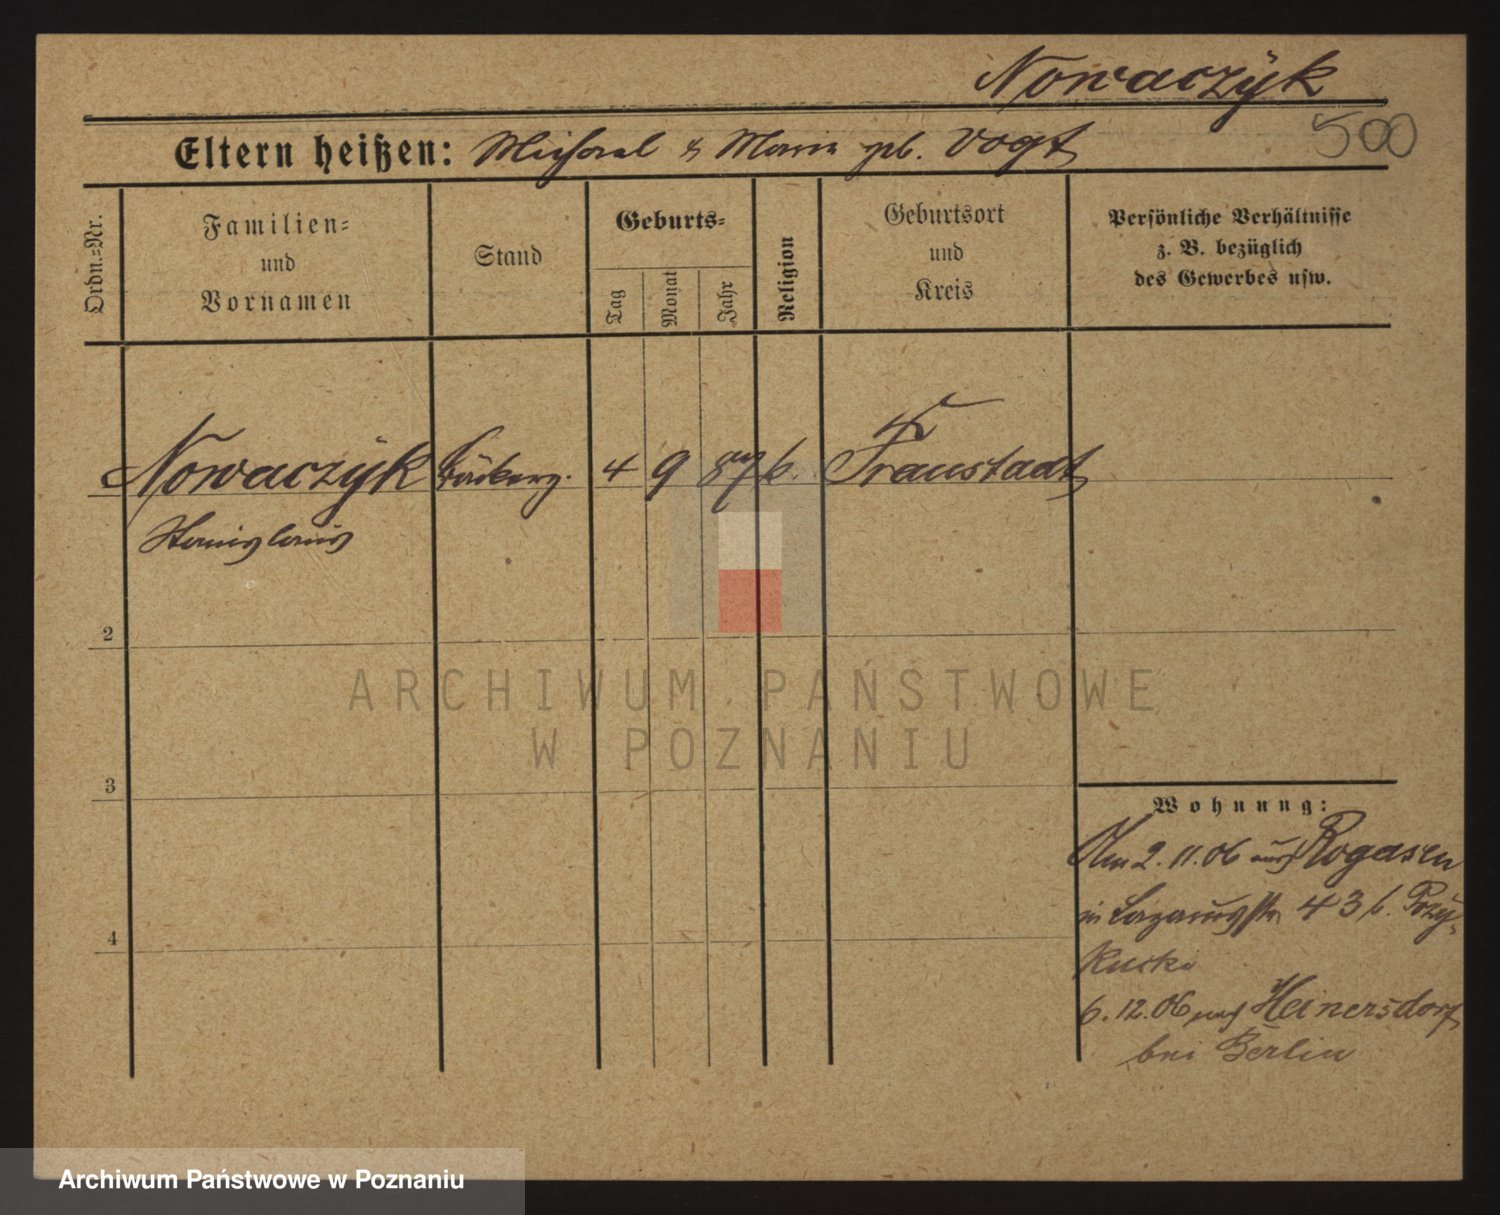 Nowaczÿk
500
Eltern heißen: Michael & Maria geb. Vogt
Ordn.-Nr.
Familien-
und
Vornamen
Stand
Geburts-
Tag
Monat
Jahr
Religion
Geburtsort
und
Kreis
Persönliche Verhältnisse
z. B. bezüglich
des Gewerbes usw.
Nowaczÿk 4 9 87 k. Fraustadt
Stanislaus
2
3
4
ARCHIWUM PAŃSTWOWE
W POZNANIU
Wohnung:
Am 2. 11. 06 aus Rogasen
in Lazarusstr 43 b.
6. 12. 06 nach Heinersdorf
bei Berlin
Archiwum Państwowe w Poznaniu